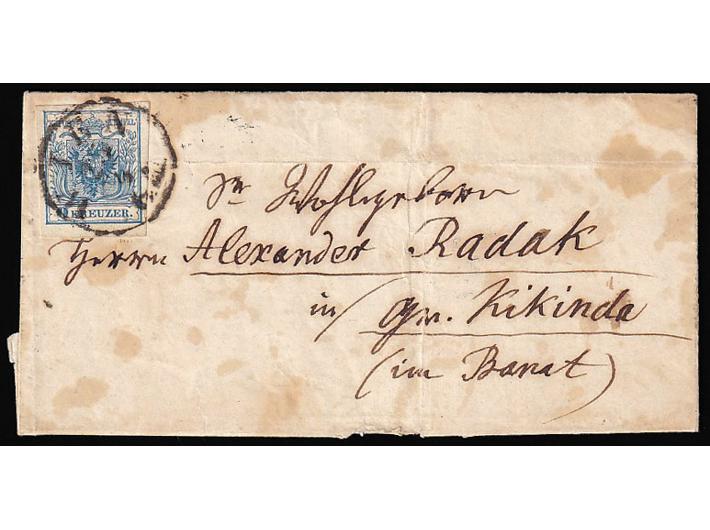 9 KREUZER.
Sr Wohlgeborn
Herrn Alexander Radak
in
Gr. Kikinda
(im Banat)